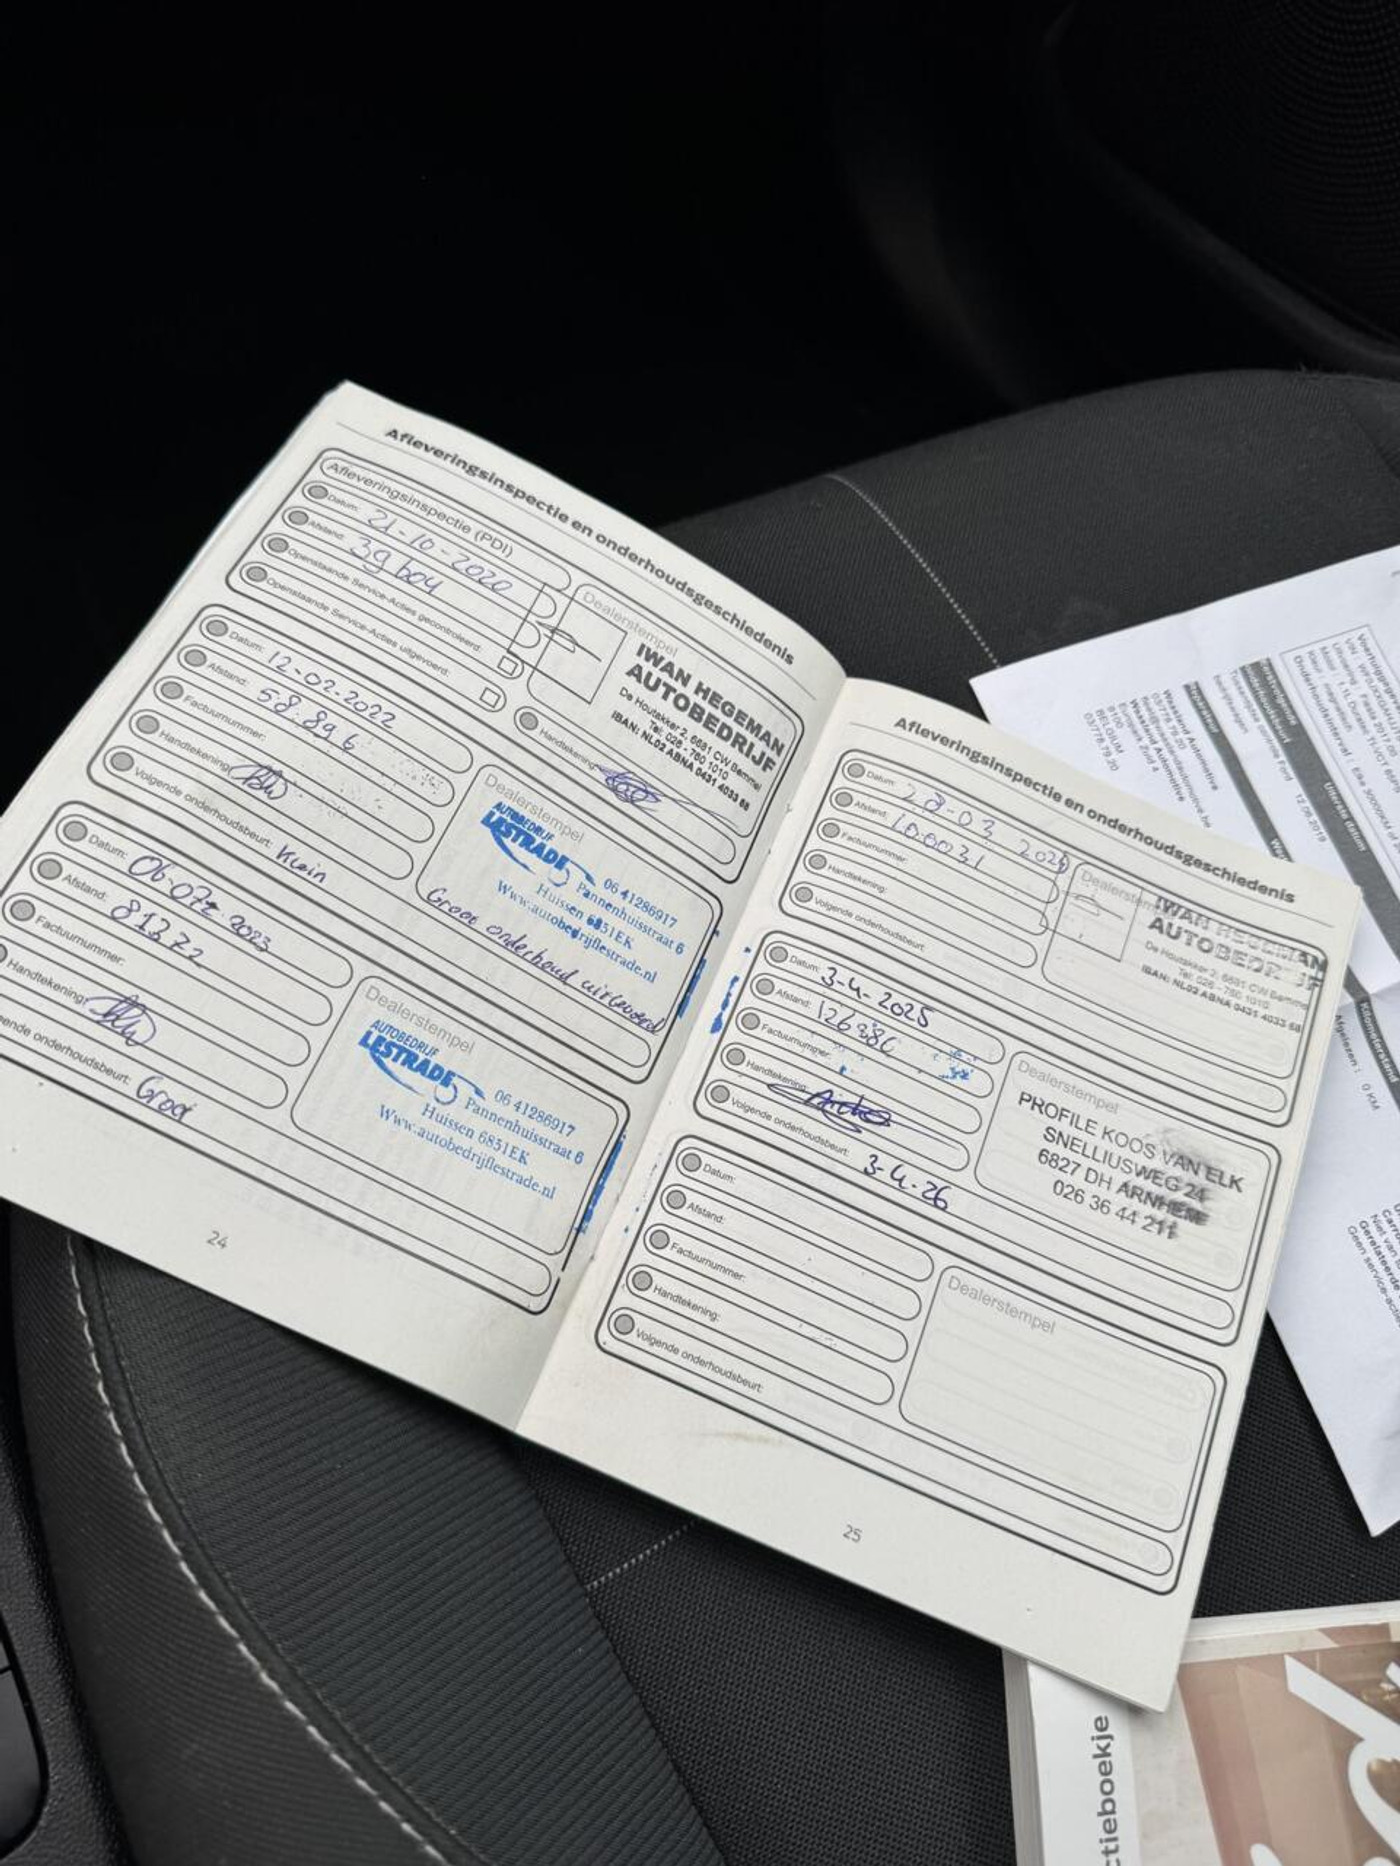 Afleveringsinspectie en onderhoudsgeschiedenis
Afleveringsinspectie (PDI)
Datum: 21-10-2020
Afstand: 39604
Openstaande Service-Acties gecontroleerd:
Openstaande Service-Acties uitgevoerd:
Dealerstempel
IWAN HEGEMAN
AUTOBEDRIJF
De Houtakker 2, 6681 CW Bemmel
Tel: 026 - 760 1010
IBAN: NL02 ABNA 0431 4033 68
Handtekening:
Datum: 12-02-2022
Afstand: 58.896
Factuurnummer:
Handtekening:
Volgende onderhoudsbeurt: Klein
Dealerstempel
AUTOBEDRIJF
LESTRADE
06 41286917
Pannenhuisstraat 6
Huissen 6851EK
Www.autobedrijflestrade.nl
Groot onderhoud uitgevoerd
Datum: 06-07-2023
Afstand: 81372
Factuurnummer:
Handtekening:
Volgende onderhoudsbeurt: Groot
Dealerstempel
AUTOBEDRIJF
LESTRADE
06 41286917
Pannenhuisstraat 6
Huissen 6851EK
Www.autobedrijflestrade.nl
24
Afleveringsinspectie en onderhoudsgeschiedenis
Datum: 28-03 2024
Afstand: 100031
Factuurnummer:
Handtekening:
Volgende onderhoudsbeurt:
Dealerstempel
IWAN HEGEMAN
AUTOBEDRIJF
De Houtakker 2, 6681 CW Bemmel
Tel: 026 - 760 1010
IBAN: NL02 ABNA 0431 4033 68
Datum: 3-4-2025
Afstand:
Factuurnummer:
Handtekening:
Volgende onderhoudsbeurt: 3-4-26
Dealerstempel
PROFILE KOOS VAN ELK
SNELLIUSWEG 24
6827 DH ARNHEM
026 36 44 211
Datum:
Afstand:
Factuurnummer:
Handtekening:
Volgende onderhoudsbeurt:
Dealerstempel
25
Waasland Automotive
Europark Zuid 4
9100
BELGIUM
03/778.79.20
12.06.2019
Uiterste datum
Kilometerstand
Afgelezen: 0 KM
ctieboekje